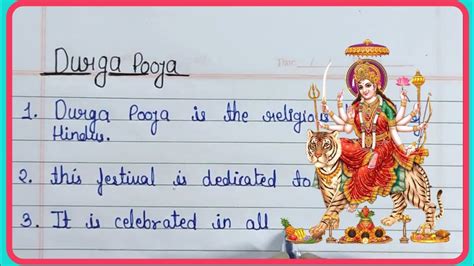 Durga Pooja
Date / /
1. Durga Pooja is the religio
Hindus.
2. this festival is dedicated to
3. It is celebrated in all